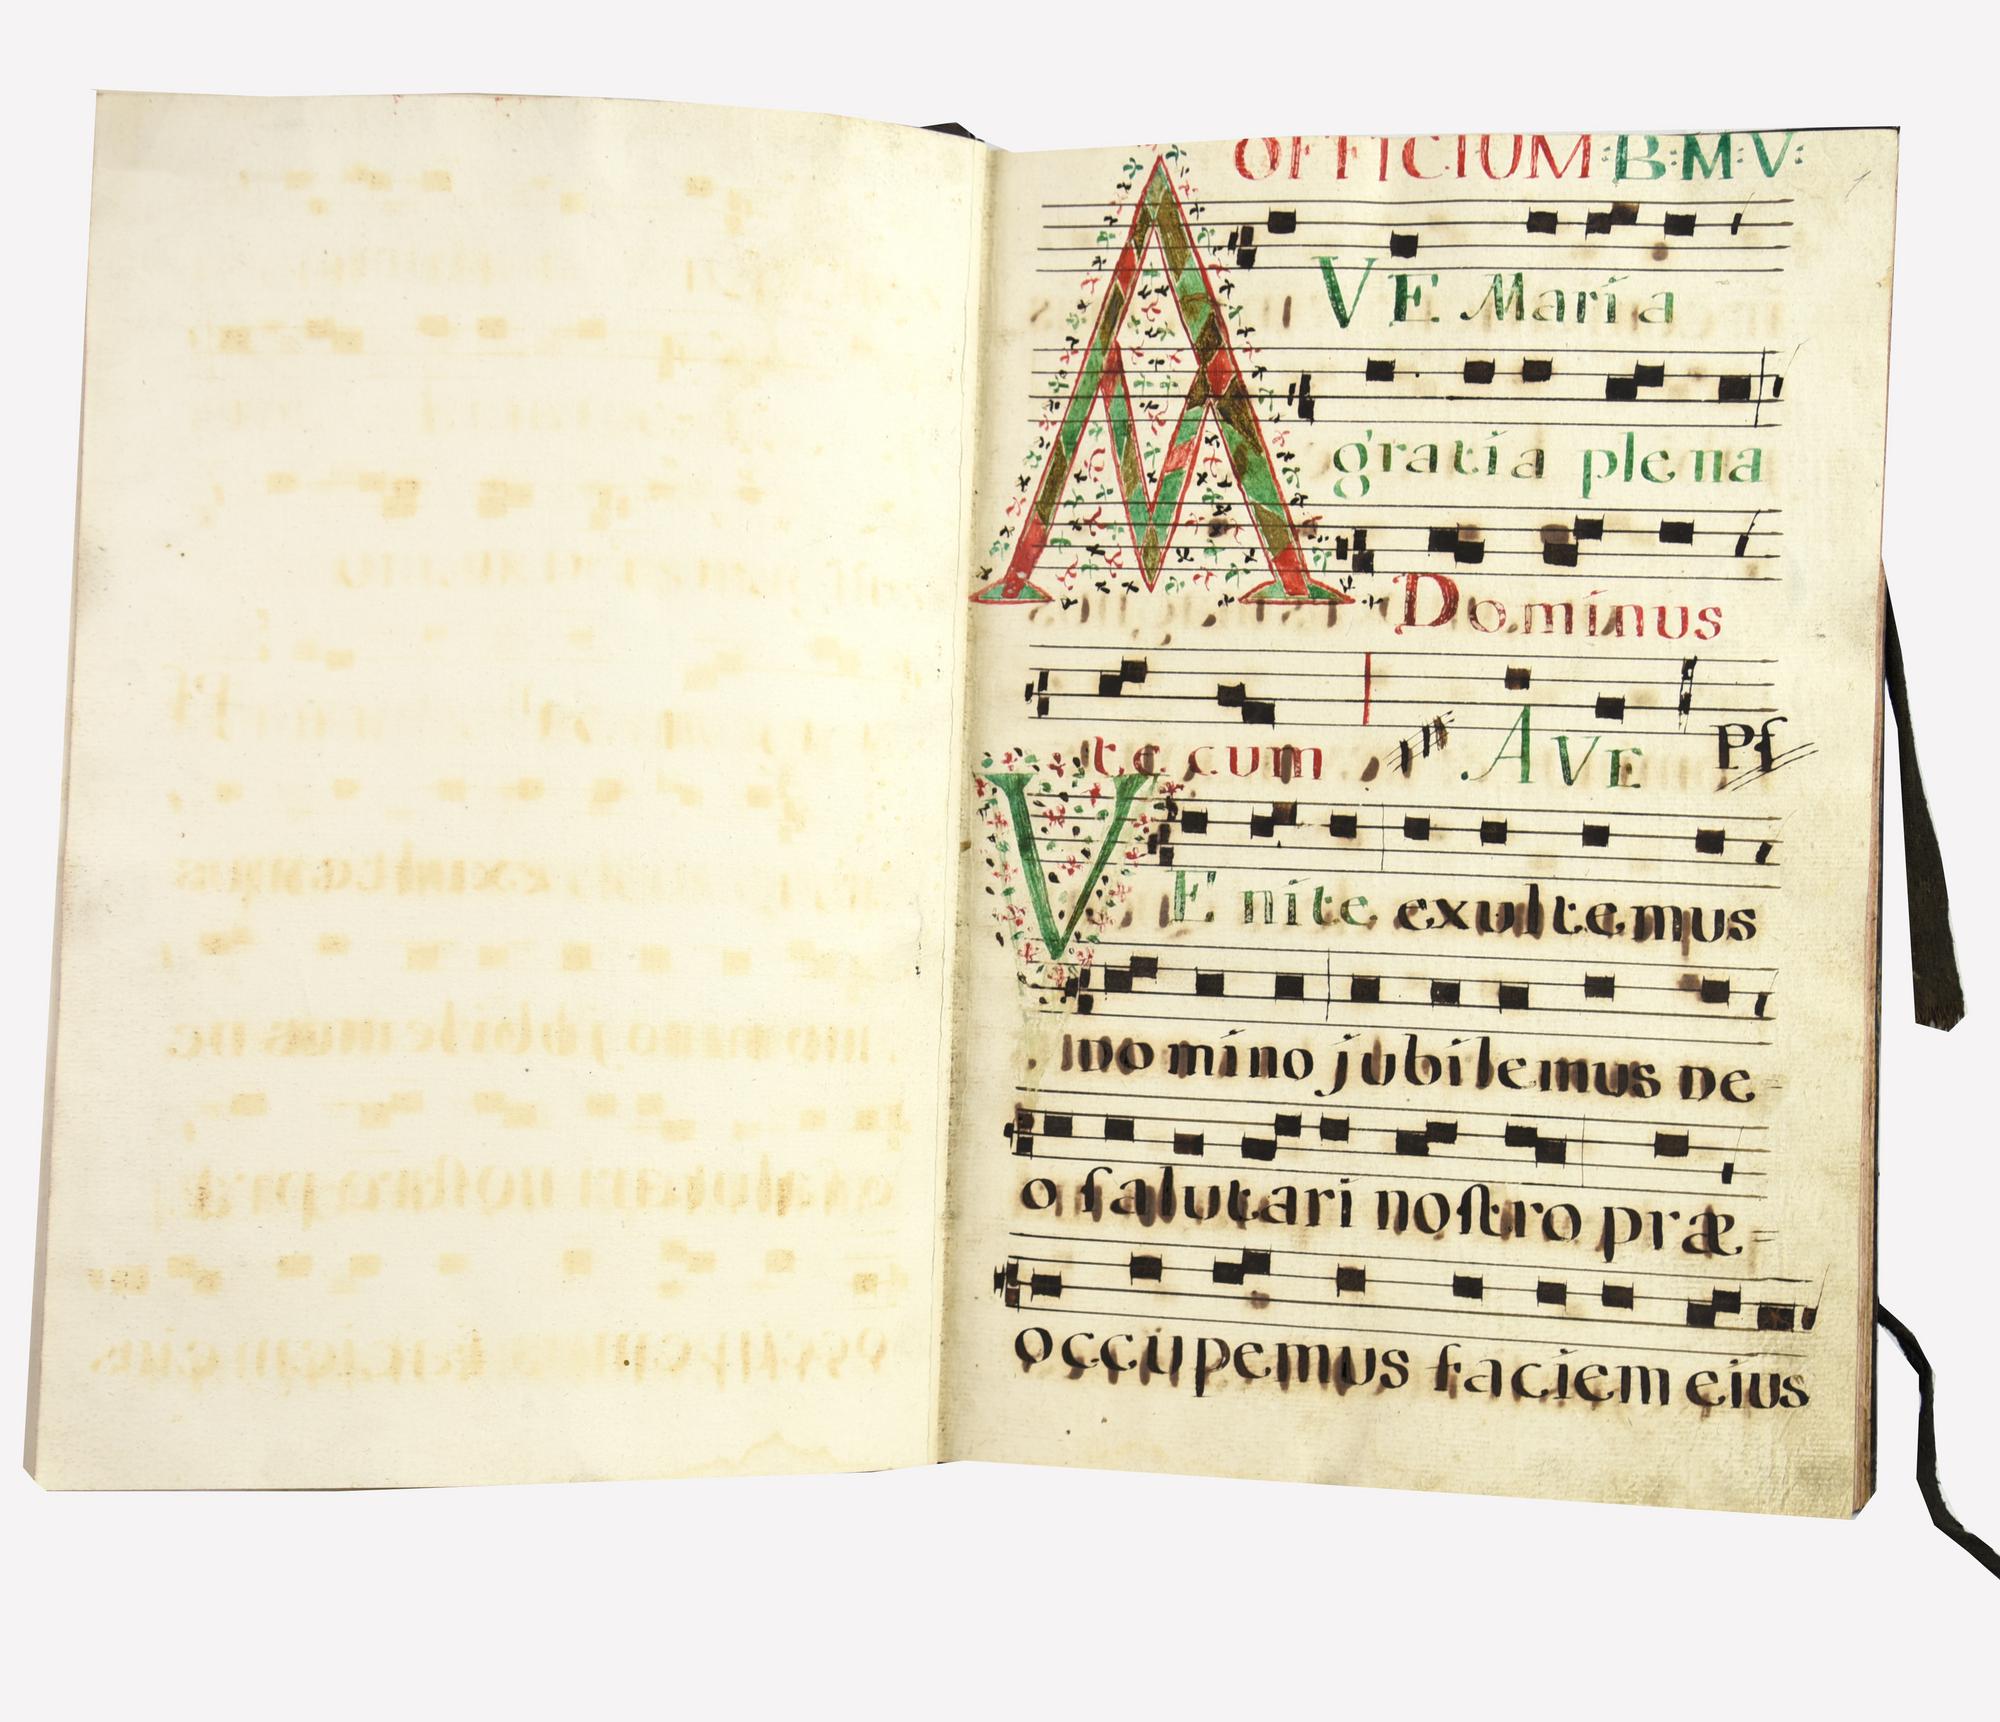 OFFICIUM B:M:V:
AVE Maria
gratia plena
Dominus
te cum AVE Ps
VEnite exultemus
Do mino jubilemus De-
o ſalutari noſtro præ=
occupemus faciem eius